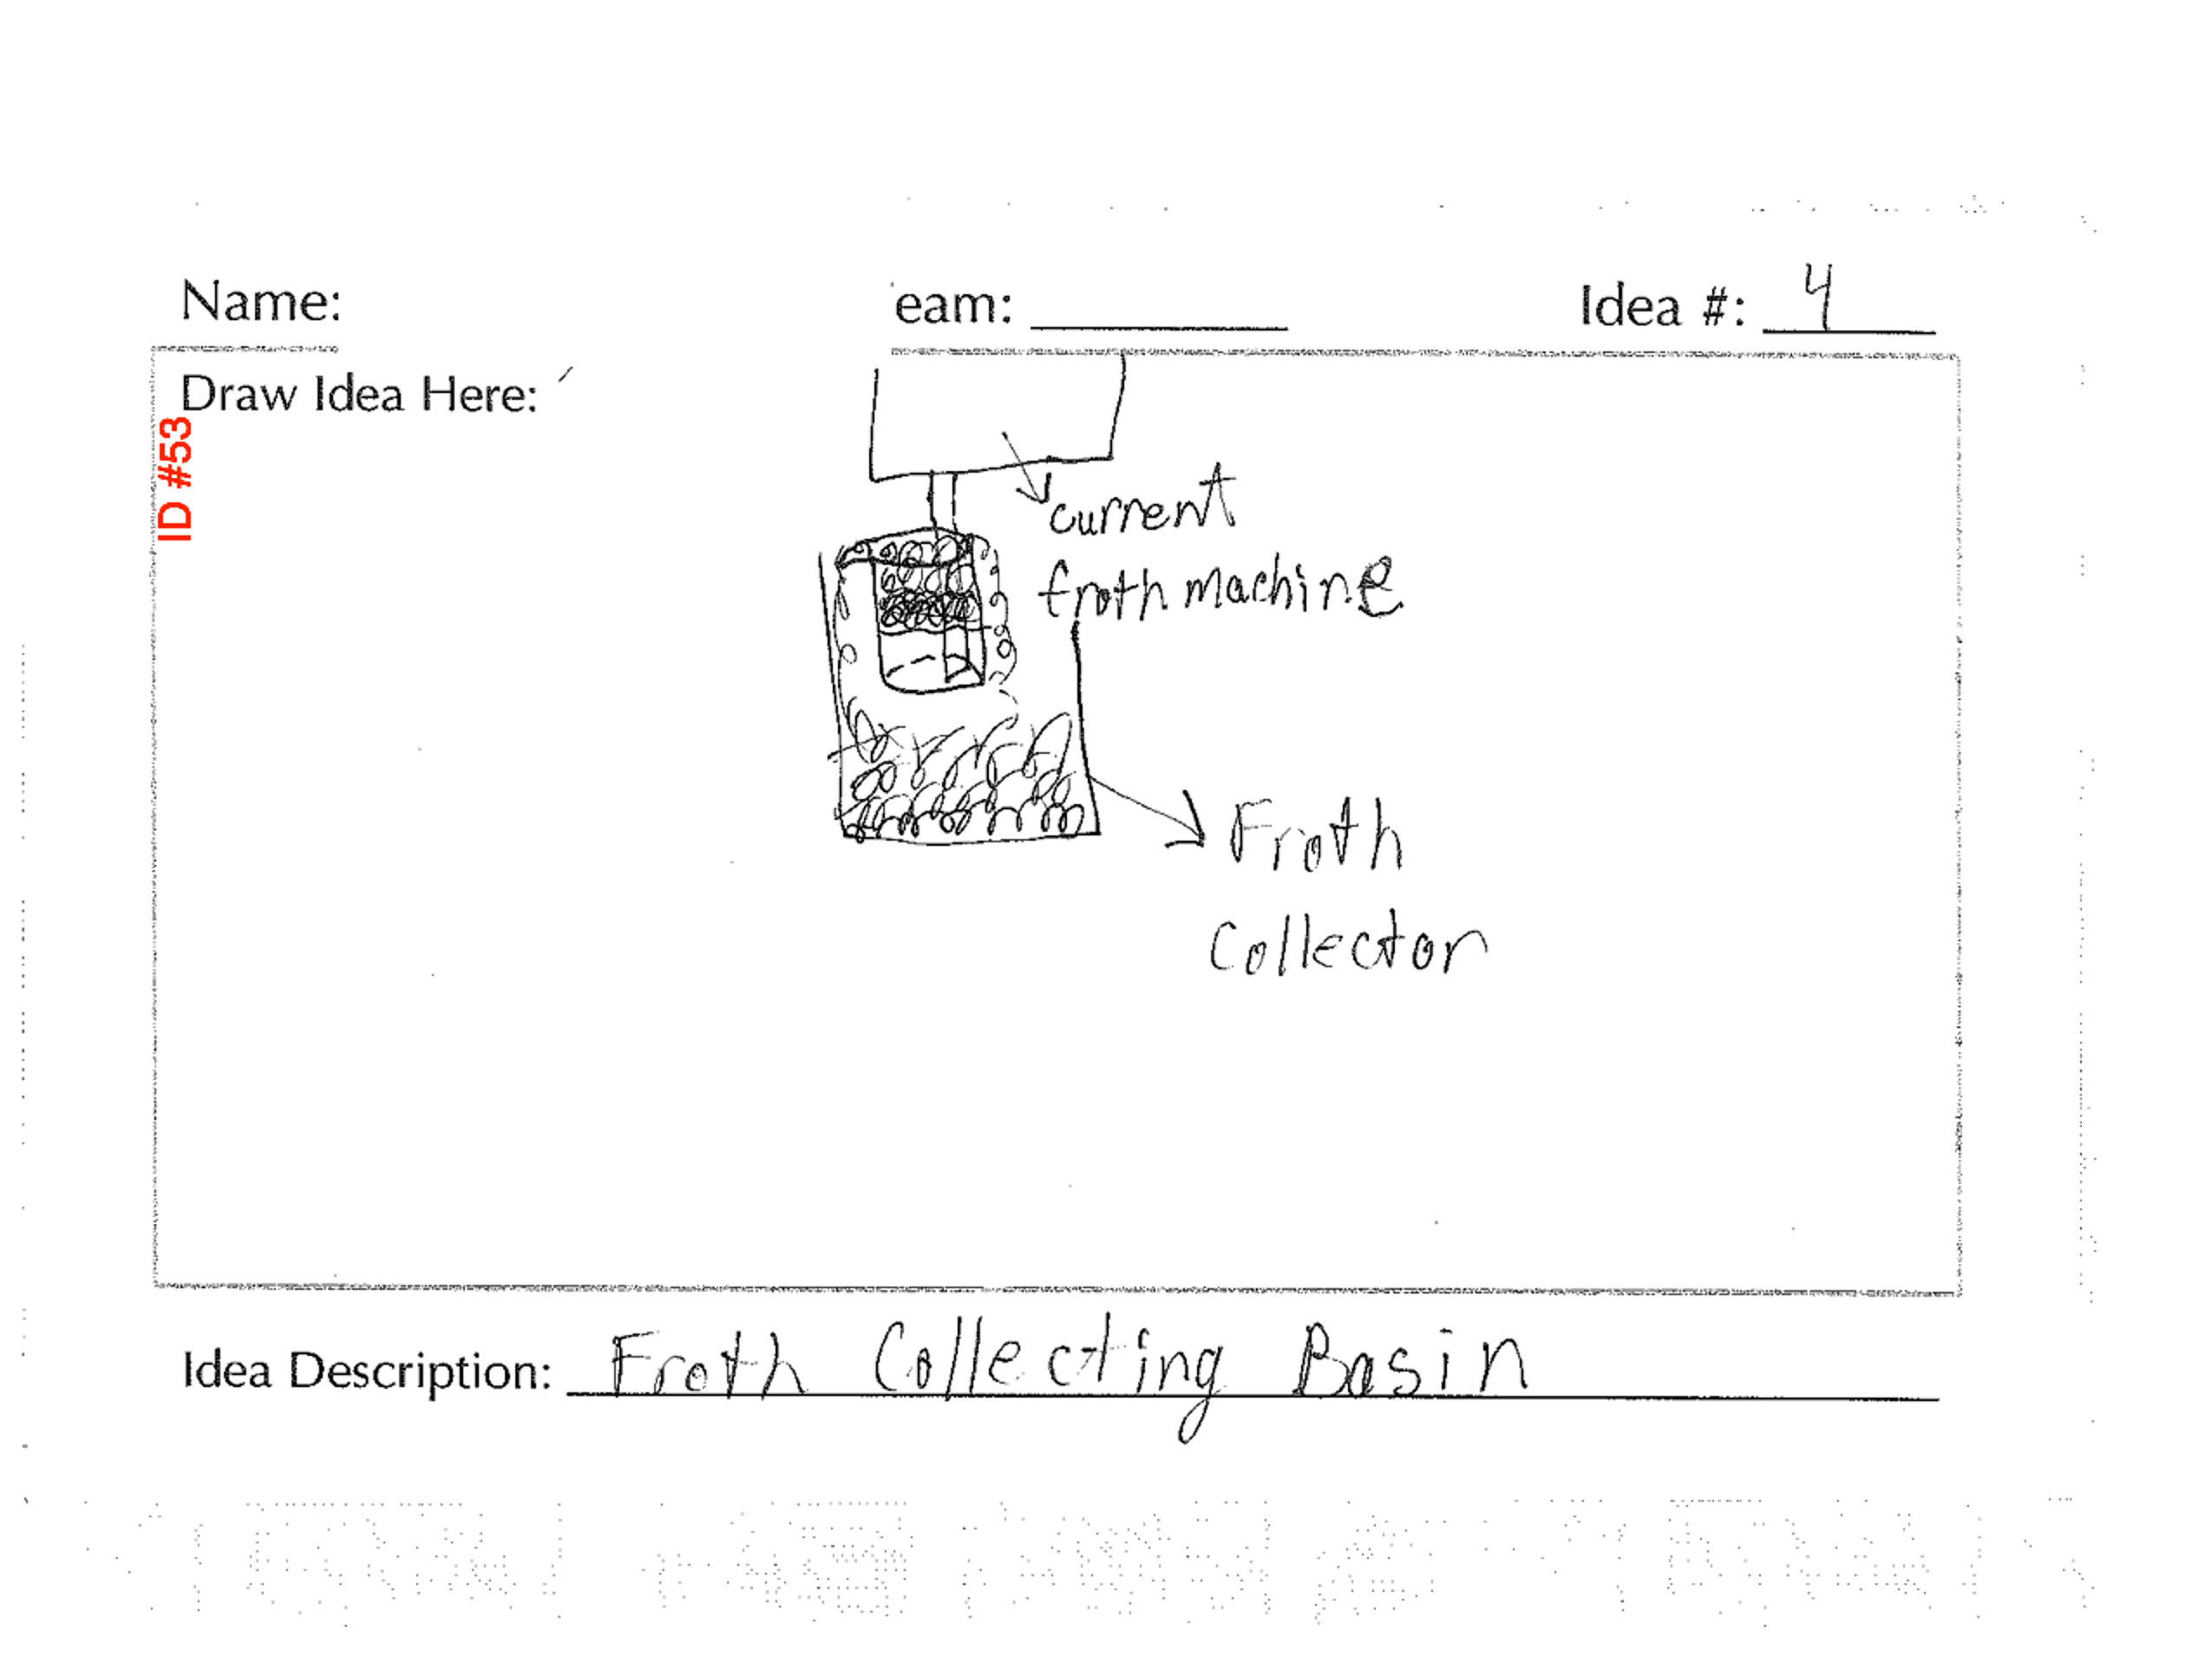 Name:
eam:
Idea #: 4
Draw Idea Here:
ID #53
current
froth machine
Froth
Collector
Idea Description: Froth Collecting Basin